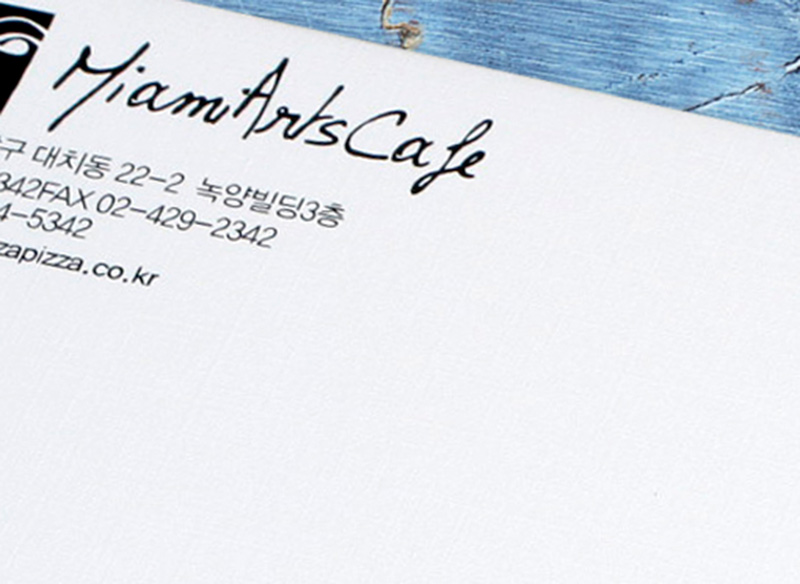 Miami Arts Cafe
구 대치동 22-2 녹양빌딩3층
342FAX 02-429-2342
4-5342
zapizza.co.kr